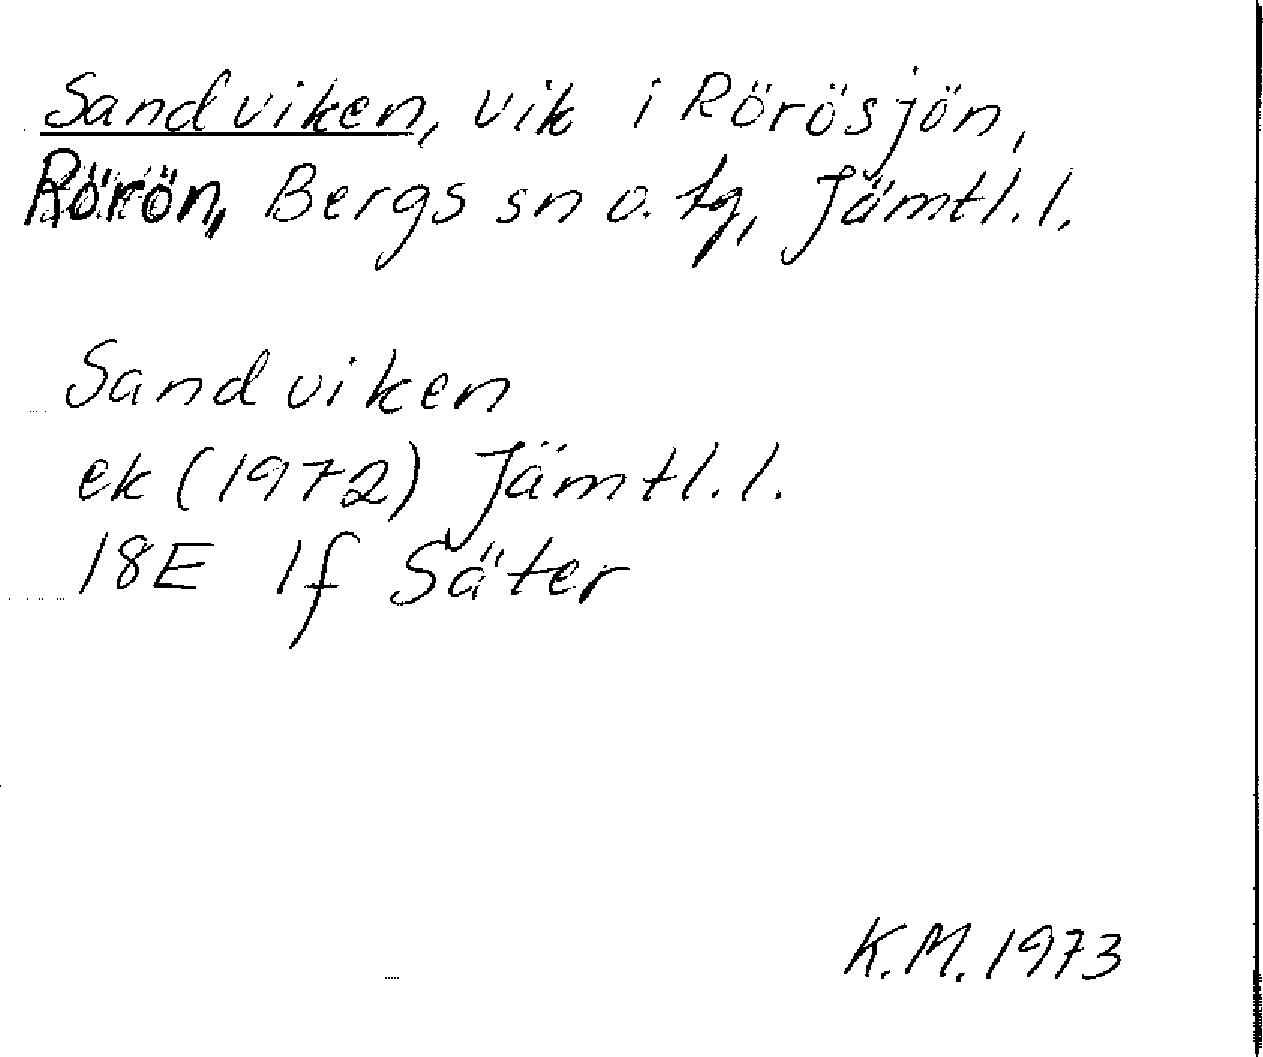 Sandviken, vik i Rörösjön,
Rörön, Bergs sn o. tg, Jämtl. l.
Sandviken
ek (1972) Jämtl. l.
18E 1f Säter
K.M. 1973